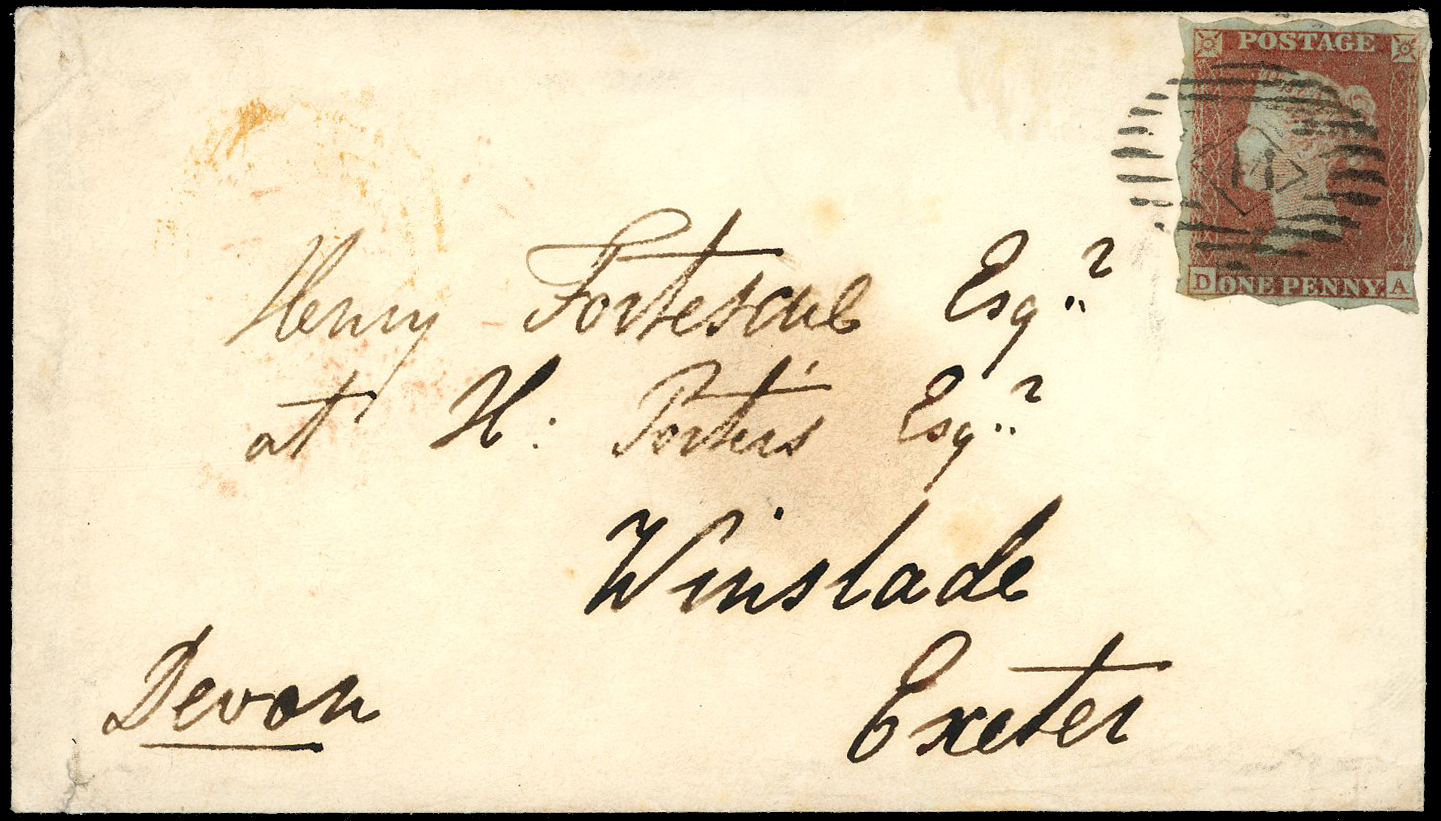 POSTAGE
D ONE PENNY A
Henry Fortescue Esqr
at H: Porter's Esqr
Winslade
Exeter
Devon